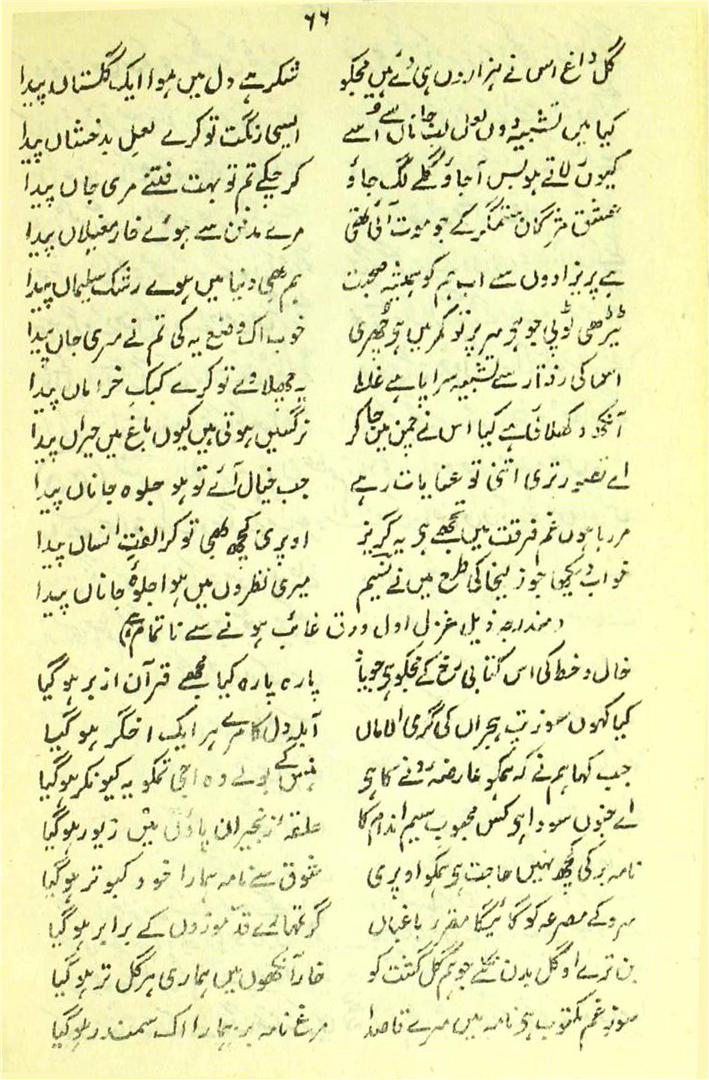 ۶۶
گل داغ اس نے ہزاروں ہی دئے ہیں مجکو شکر ہے دل میں ہوا ایک گلستاں پیدا
کیا میں تشبیہ دوں لعل لب جاناں سے اُسے ایسی رنگت تو کرے لعل بدخشاں پیدا
کیوں لاتے ہو بس آ جاؤ گلے لگ جاؤ کر چکے تم تو بہت فتنے مری جاں پیدا
عشق مژگان ستمگر کے جو موت آئی تھی مرے مدفن سے ہوئے خار مغیلاں پیدا
ہے پریزادوں سے اب ہم کو ہمیشہ صحبت ہم بھی دنیا میں ہوے رشک سلیماں پیدا
ٹیڑھی ٹوپی جو ہی سر پر تو کمر میں ہی چھری خوب اک وضع یہ کی تم نے مری جاں پیدا
اس کی رفتار سے تشبیہ سراپا ہے غلط یہ تو کرے کبک خراماں پیدا
آنکھ دکھلاتا ہے کیا اس نے چمن میں جا کر نرگسیں ہوتی ہیں کیوں باغ میں حیراں پیدا
اے تصور تری اتنی تو عنایات رہے جب خیال آئے تو ہو جلوہ جاناں پیدا
مر رہا ہوں غم فرقت میں تجھے ہی یہ گریز او پری کچھ بھی تو کر الفت انساں پیدا
خواب دیکھی جو زلیخا کی طرح میں نے نسیم میری نظروں میں ہوا جلوۂ جاناں پیدا
(مندرجہ ذیل غزل اول ورق غائب ہونے سے ناتمام ہے)
خال و خط کی اس کتابی رخ کے مجکو ہی جو یاد پارہ پارہ کیا مجھے قرآن ازبر ہو گیا
کیا کہوں سوز تپ ہجراں کی گرمی الاماں آبلہ دل کا مرے ہر ایک اخگر ہو گیا
جب کہا ہم نے کہ ہمکو عارضہ رونے کا ہی ہنس کے بولے وہ اجی تمکو یہ کیونکر ہو گیا
اے جنوں سودا ہی کس محبوب سیم اندام کا حلقہ زنجیر ان پاؤں میں زیور ہو گیا
نامہ بر کی کچھ نہیں حاجت ہی ہمکو او پری شوق سے نامہ ہمارا خود کبوتر ہو گیا
سرو کے مصرعہ کو گا مقرر باغباں گر تمہارے قد موزوں کے برابر ہو گیا
بن ترے او گل بدن گئے جو ہم گل گشت کو خار آنکھوں میں ہماری ہر گل تر ہو گیا
سوز غم مکتوب ہی نامہ میں مرے قاصدا مرغ نامہ بر ہمارا اک سمندر ہو گیا